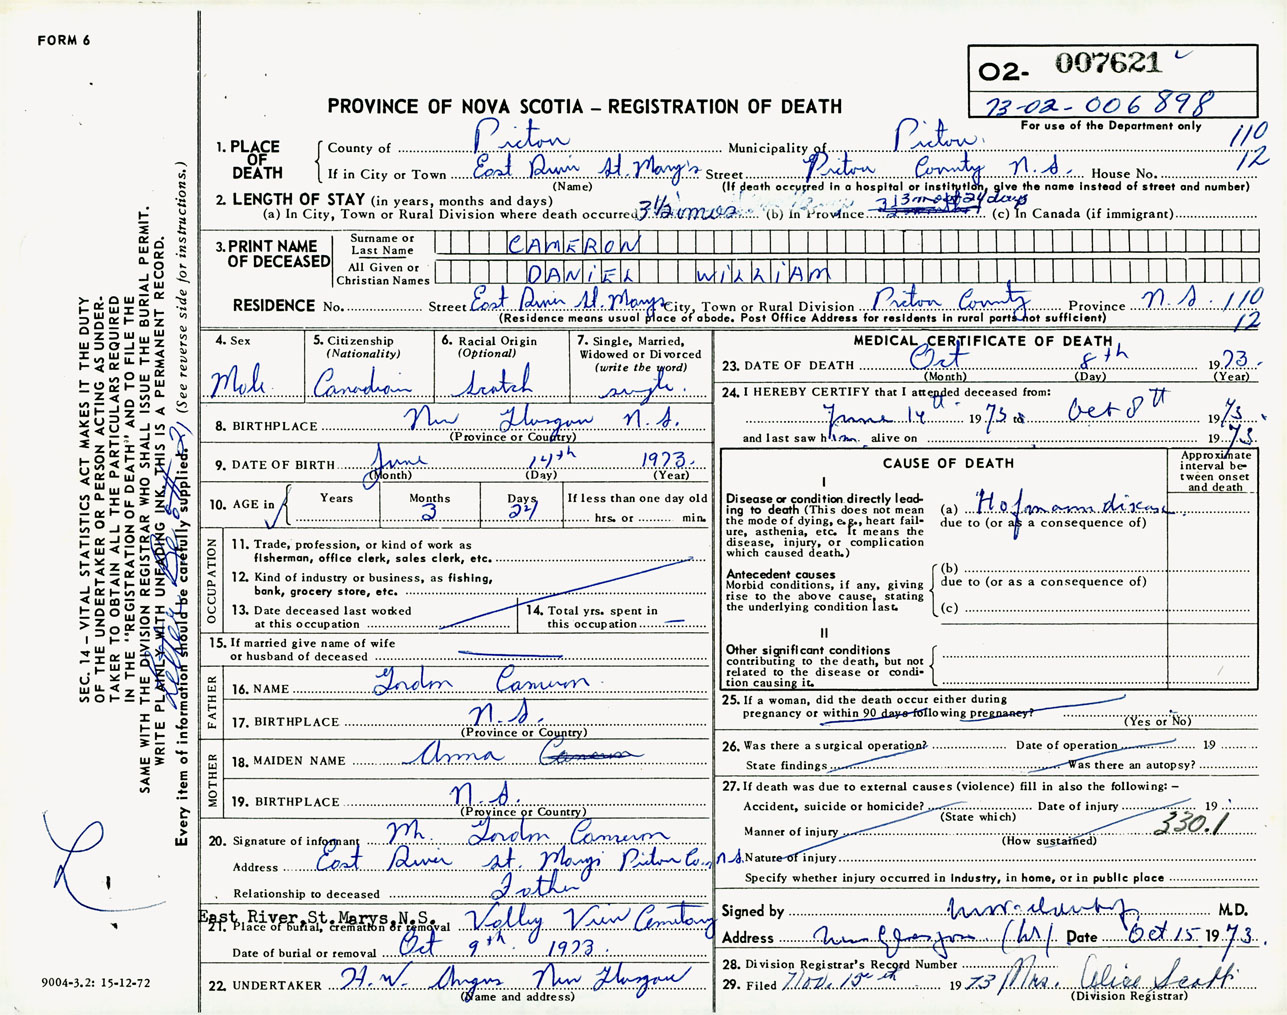 FORM 6
O2- 007621
73-02-006898
For use of the Department only
PROVINCE OF NOVA SCOTIA – REGISTRATION OF DEATH
1. PLACE OF DEATH
County of Pictou Municipality of Pictou. 110
If in City or Town East River St. Mary's Street Pictou County N.S. House No. 12
(Name) (If death occurred in a hospital or institution, give the name instead of street and number)
2. LENGTH OF STAY (in years, months and days)
(a) In City, Town or Rural Division where death occurred 3 1/2 mos (b) In Province (c) In Canada (if immigrant)
3. PRINT NAME OF DECEASED
Surname or Last Name CAMERON
All Given or Christian Names DANIEL WILLIAM
RESIDENCE No. Street East River St. Marys City, Town or Rural Division Pictou County Province N.S. 110
(Residence means usual place of abode. Post Office Address for residents in rural parts not sufficient) 12
4. Sex
Male
5. Citizenship
(Nationality)
Canadian
6. Racial Origin
(Optional)
Scotch
7. Single, Married, Widowed or Divorced
(write the word)
single.
8. BIRTHPLACE New Glasgow N.S.
(Province or Country)
9. DATE OF BIRTH June 14th 1973.
(Month) (Day) (Year)
10. AGE in Years Months 3 Days If less than one day old
hrs. or min.
OCCUPATION
11. Trade, profession, or kind of work as fisherman, office clerk, sales clerk, etc.
12. Kind of industry or business, as fishing, bank, grocery store, etc.
13. Date deceased last worked at this occupation
14. Total yrs. spent in this occupation —
15. If married give name of wife or husband of deceased
FATHER
16. NAME Gordon Cameron
17. BIRTHPLACE N.S.
(Province or Country)
MOTHER
18. MAIDEN NAME Anna Cameron
19. BIRTHPLACE N.S.
(Province or Country)
20. Signature of informant Mr. Gordon Cameron
Address East River St. Marys Pictou Co., N.S.
Relationship to deceased Father
East River, St. Marys, N.S.
21. Place of burial, cremation or removal Valley View Cemetary
Date of burial or removal Oct 9th 1973.
22. UNDERTAKER H.W. Angus New Glasgow
(Name and address)
MEDICAL CERTIFICATE OF DEATH
23. DATE OF DEATH Oct 8th 1973.
(Month) (Day) (Year)
24. I HEREBY CERTIFY that I attended deceased from:
June 14th 1973 to Oct 8th 1973
and last saw him alive on 1973.
CAUSE OF DEATH
Approximate interval between onset and death
I
Disease or condition directly leading to death (This does not mean the mode of dying, e.g., heart failure, asthenia, etc. It means the disease, injury, or complication which caused death.)
(a) Hofmann disease.
due to (or as a consequence of)
Antecedent causes
Morbid conditions, if any, giving rise to the above cause, stating the underlying condition last.
(b)
due to (or as a consequence of)
(c)
II
Other significant conditions
contributing to the death, but not related to the disease or condition causing it.
25. If a woman, did the death occur either during pregnancy or within 90 days following pregnancy?
(Yes or No)
26. Was there a surgical operation? Date of operation 19
State findings Was there an autopsy?
27. If death was due to external causes (violence) fill in also the following: –
Accident, suicide or homicide? Date of injury 19
(State which)
Manner of injury 330.1
(How sustained)
Nature of injury
Specify whether injury occurred in Industry, in home, or in public place
Signed by M.D.
Address New Glasgow (NS) Date Oct 15 1973.
28. Division Registrar's Record Number
29. Filed Nov. 1973 Mrs. Alice Scott
(Division Registrar)
SEC. 14 – VITAL STATISTICS ACT MAKES IT THE DUTY
OF THE UNDERTAKER OR PERSON ACTING AS UNDER-
TAKER TO OBTAIN ALL THE PARTICULARS REQUIRED
IN THE "REGISTRATION OF DEATH" AND TO FILE THE
SAME WITH THE DIVISION REGISTRAR WHO SHALL ISSUE THE BURIAL PERMIT.
WRITE PLAINLY WITH UNFADING INK. THIS IS A PERMANENT RECORD.
Every item of information should be carefully supplied. (See reverse side for instructions.)
9004-3.2: 15-12-72